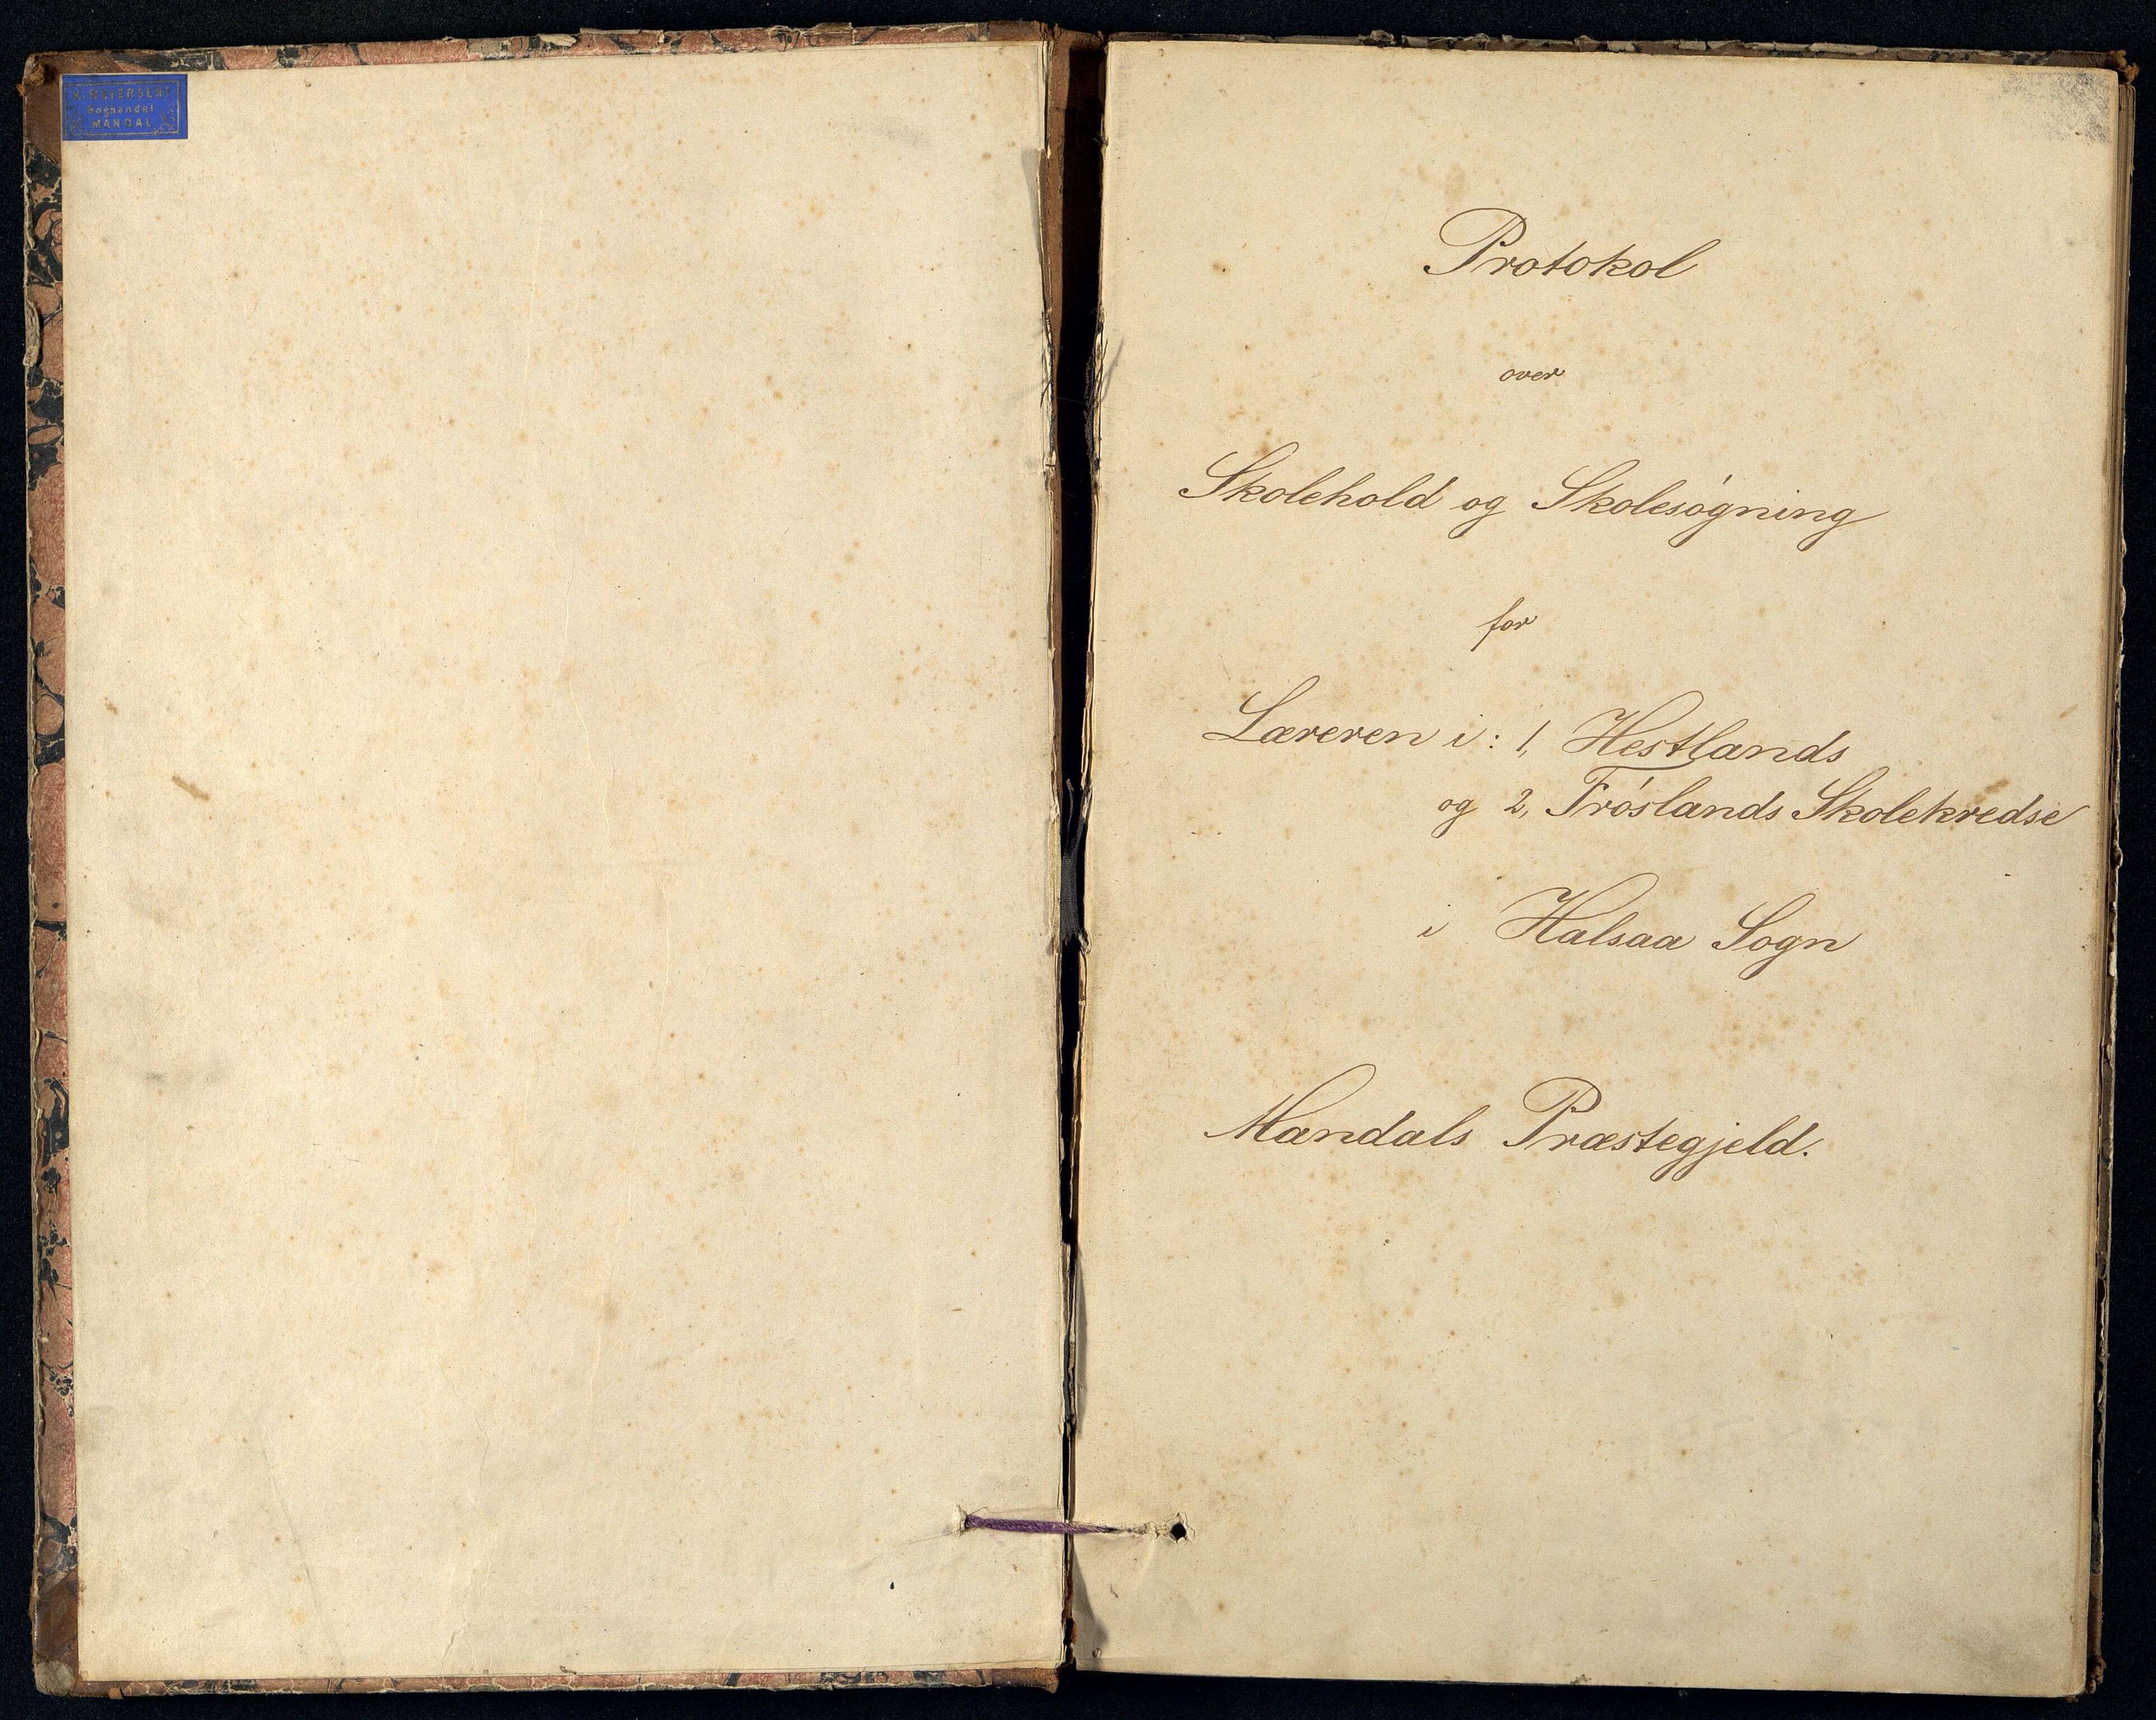 Boghandel
MANDAL
Protokol
over
Skolehold og Skolesógning
for
Læreren i : 1, Hestlands
og 2, Fróslands Skolekredse
i Halsaa Sogn
Mandals Præstegjeld.